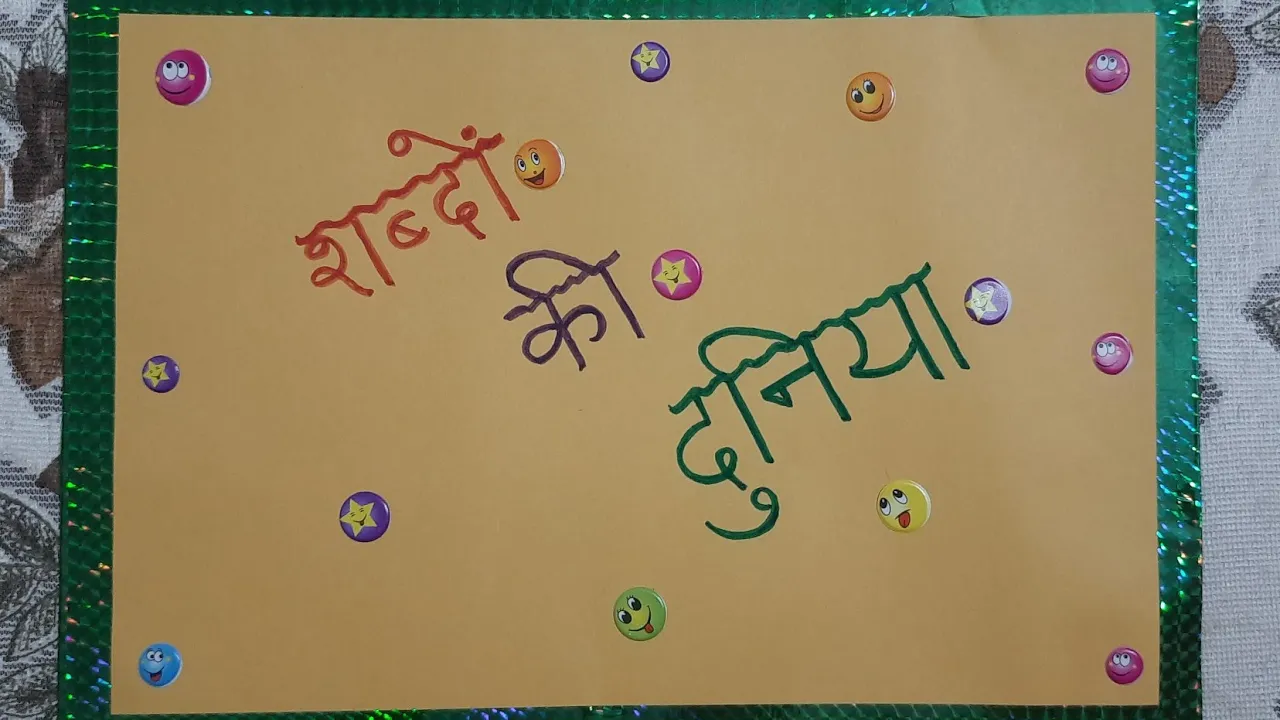 शब्दों
की
दुनिया